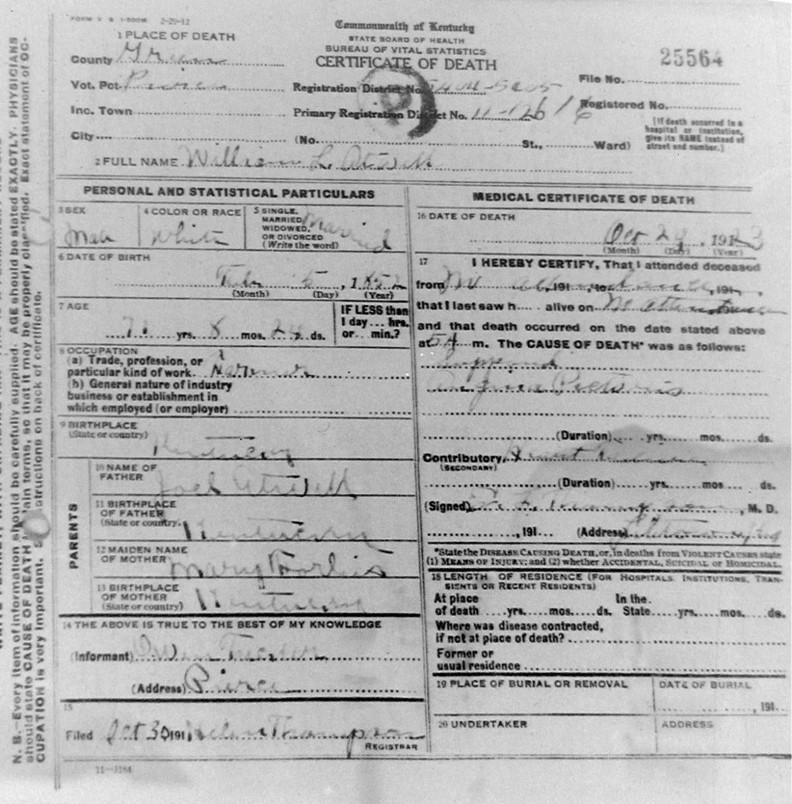 FORM V S 1-500M 2-20-12
1 PLACE OF DEATH
County
Vot. Pct. Pierce
Inc. Town
City
Commonwealth of Kentucky
STATE BOARD OF HEALTH
BUREAU OF VITAL STATISTICS
CERTIFICATE OF DEATH
25564
File No.
Registration District No.
Primary Registration District No.
Registered No.
(No. St., Ward)
[If death occurred in a
hospital or institution,
give its NAME instead of
street and number.]
2 FULL NAME William L. Atwell
PERSONAL AND STATISTICAL PARTICULARS
3 SEX Male
4 COLOR OR RACE White
5 SINGLE, MARRIED, WIDOWED, OR DIVORCED (Write the word) Married
6 DATE OF BIRTH
Feb 5, 1852
(Month) (Day) (Year)
7 AGE
71 yrs. 8 mos. 24 ds.
IF LESS than
1 day ... hrs.
or ... min.?
8 OCCUPATION
(a) Trade, profession, or
particular kind of work. Farmer
(b) General nature of industry
business or establishment in
which employed (or employer)
9 BIRTHPLACE
(State or country)
Kentucky
PARENTS
10 NAME OF
FATHER Joel Atwell
11 BIRTHPLACE
OF FATHER
(State or country. Kentucky
12 MAIDEN NAME
OF MOTHER Mary
13 BIRTHPLACE
OF MOTHER
(State or country) Kentucky
14 THE ABOVE IS TRUE TO THE BEST OF MY KNOWLEDGE
(Informant)
(Address) Pierce
15
Filed Oct 30 191 Helen Thompson
REGISTRAR
11-3184
MEDICAL CERTIFICATE OF DEATH
16 DATE OF DEATH
Oct 29, 1923
(Month) (Day) (Year)
17 I HEREBY CERTIFY, That I attended deceased
from No attendance 191 , to 191 ,
that I last saw h alive on No attendance
and that death occurred on the date stated above
at m. The CAUSE OF DEATH* was as follows:
Angina Pectoris
(Duration) yrs. mos. ds.
Contributory
(SECONDARY)
(Duration) yrs. mos. ds.
(Signed) M. D.
, 191 (Address)
*State the DISEASE CAUSING DEATH, or, in deaths from VIOLENT CAUSES state
(1) MEANS OF INJURY; and (2) whether ACCIDENTAL, SUICIDAL or HOMICIDAL.
18 LENGTH OF RESIDENCE (FOR HOSPITALS, INSTITUTIONS, TRAN-
SIENTS OR RECENT RESIDENTS)
At place In the
of death yrs. mos. ds. State yrs. mos. ds.
Where was disease contracted,
if not at place of death?
Former or
usual residence
19 PLACE OF BURIAL OR REMOVAL
DATE OF BURIAL
, 191
20 UNDERTAKER
ADDRESS
N. B.—Every item of information should be carefully supplied. AGE should be stated EXACTLY. PHYSICIANS
should state CAUSE OF DEATH in plain terms, so that it may be properly classified. Exact statement of OC-
CUPATION is very important. See instructions on back of certificate.